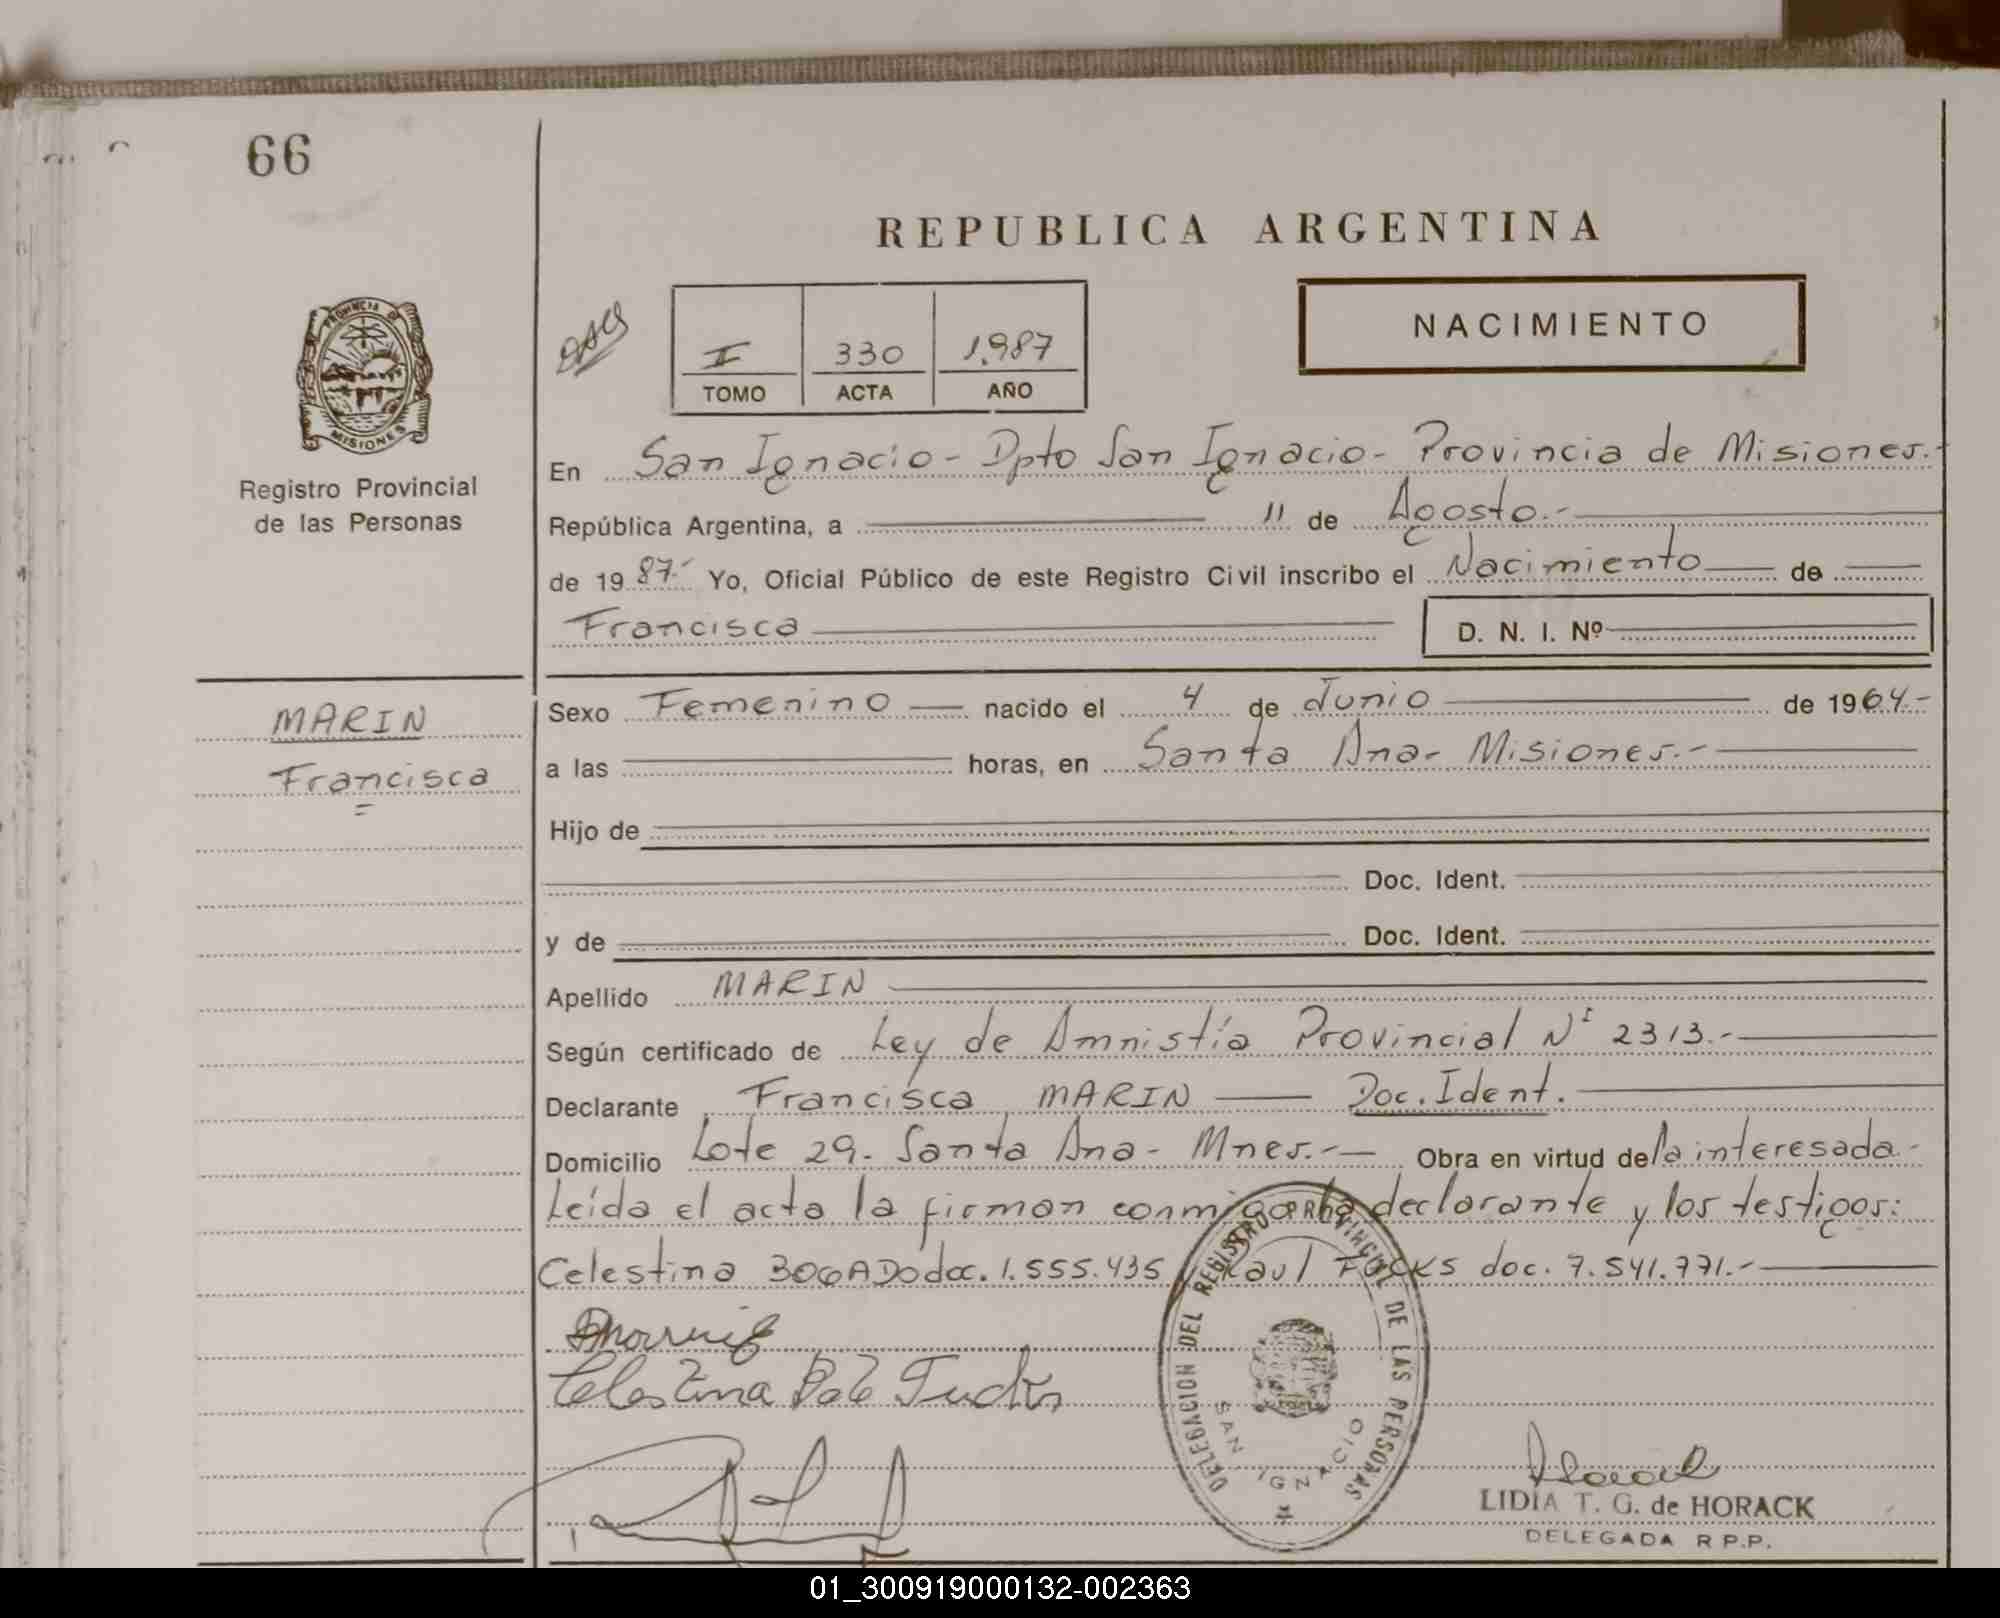 66
REPUBLICA ARGENTINA
PROVINCIA DE
MISIONES
Registro Provincial
de las Personas
I 330 1.987
TOMO ACTA AÑO
NACIMIENTO
En San Ignacio - Dpto San Ignacio - Provincia de Misiones.-
República Argentina, a 11 de Agosto.-
de 19 87.- Yo, Oficial Público de este Registro Civil inscribo el Nacimiento de
Francisca
D. N. I. Nº
MARIN
Francisca
Sexo Femenino nacido el 4 de Junio de 1964.-
a las horas, en Santa Ana - Misiones.-
Hijo de
Doc. Ident.
y de Doc. Ident.
Apellido MARIN
Según certificado de Ley de Amnistía Provincial Nº 2313.-
Declarante Francisca MARIN Doc. Ident.
Domicilio Lote 29.- Santa Ana - Mnes.- Obra en virtud de la interesada.-
Leída el acta la firman conmigo la declarante y los testigos:
Celestina BOGADO doc. 1.555.435 y Raul FUCKS doc. 7.541.771.-
Celestina
DELEGACION DEL REGISTRO PROVINCIAL DE LAS PERSONAS
SAN IGNACIO
LIDIA T. G. de HORACK
DELEGADA R P.P.
01_300919000132-002363